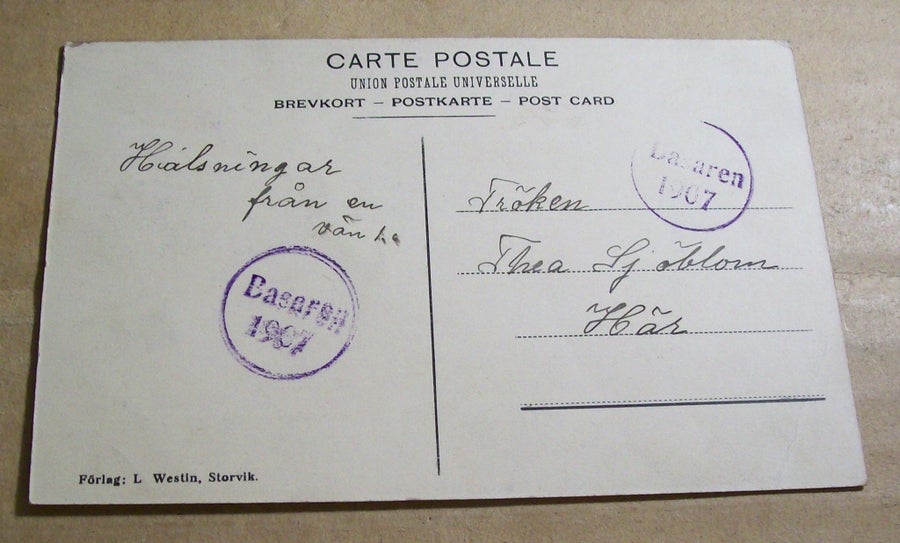 CARTE POSTALE
UNION POSTALE UNIVERSELLE
BREVKORT – POSTKARTE – POST CARD
Hälsningar
från en
vän
Basaren
1907
Fröken
Thea Sjöblom
Här
Basaren
1907
Förlag: L Westin, Storvik.